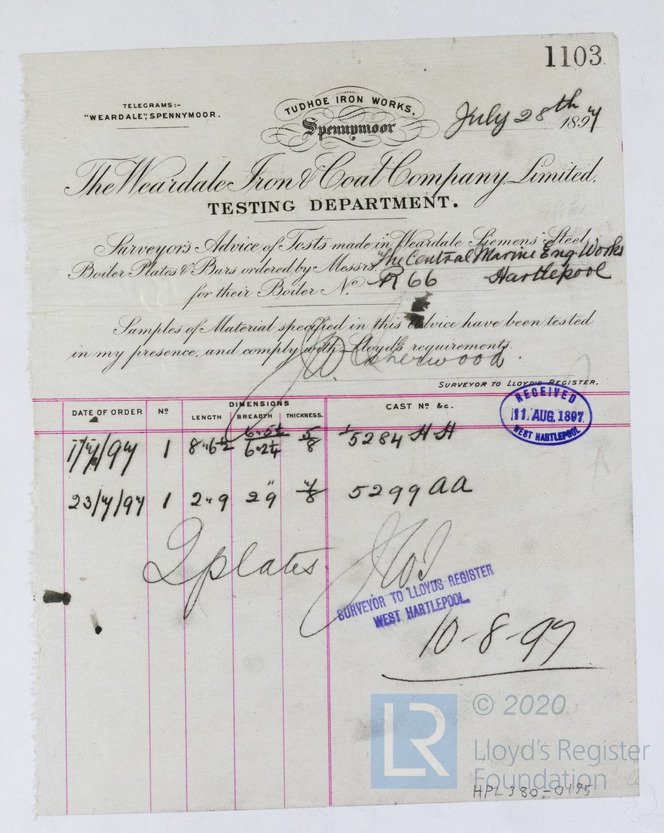 1103
TELEGRAMS:-
"WEARDALE", SPENNYMOOR.
TUDHOE IRON WORKS.
Spennymoor
July 28th 1897
The Weardale Iron & Coal Company, Limited.
TESTING DEPARTMENT.
Surveyor's Advice of Tests made in Weardale Siemens Steel
Boiler Plates & Bars ordered by Messrs. The Central Marine Eng Works
for their Boiler No. R 66 Hartlepool
Samples of Material specified in this Advice have been tested
in my presence, and comply with Lloyd's requirements.
J.W. Isherwood.
SURVEYOR TO LLOYD'S REGISTER.
DATE OF ORDER No DIMENSIONS CAST No &c.
LENGTH BREADTH THICKNESS.
RECEIVED
11. AUG. 1897
WEST HARTLEPOOL
1 8"6½ 6"2¼ 5/8 5284 HH
23/7/97 1 2"9 2"9 5299 AA
2 plates. J.W.I.
SURVEYOR TO LLOYDS REGISTER
WEST HARTLEPOOL.
10-8-97
LR © 2020
Lloyd's Register
Foundation
HPL380-0195